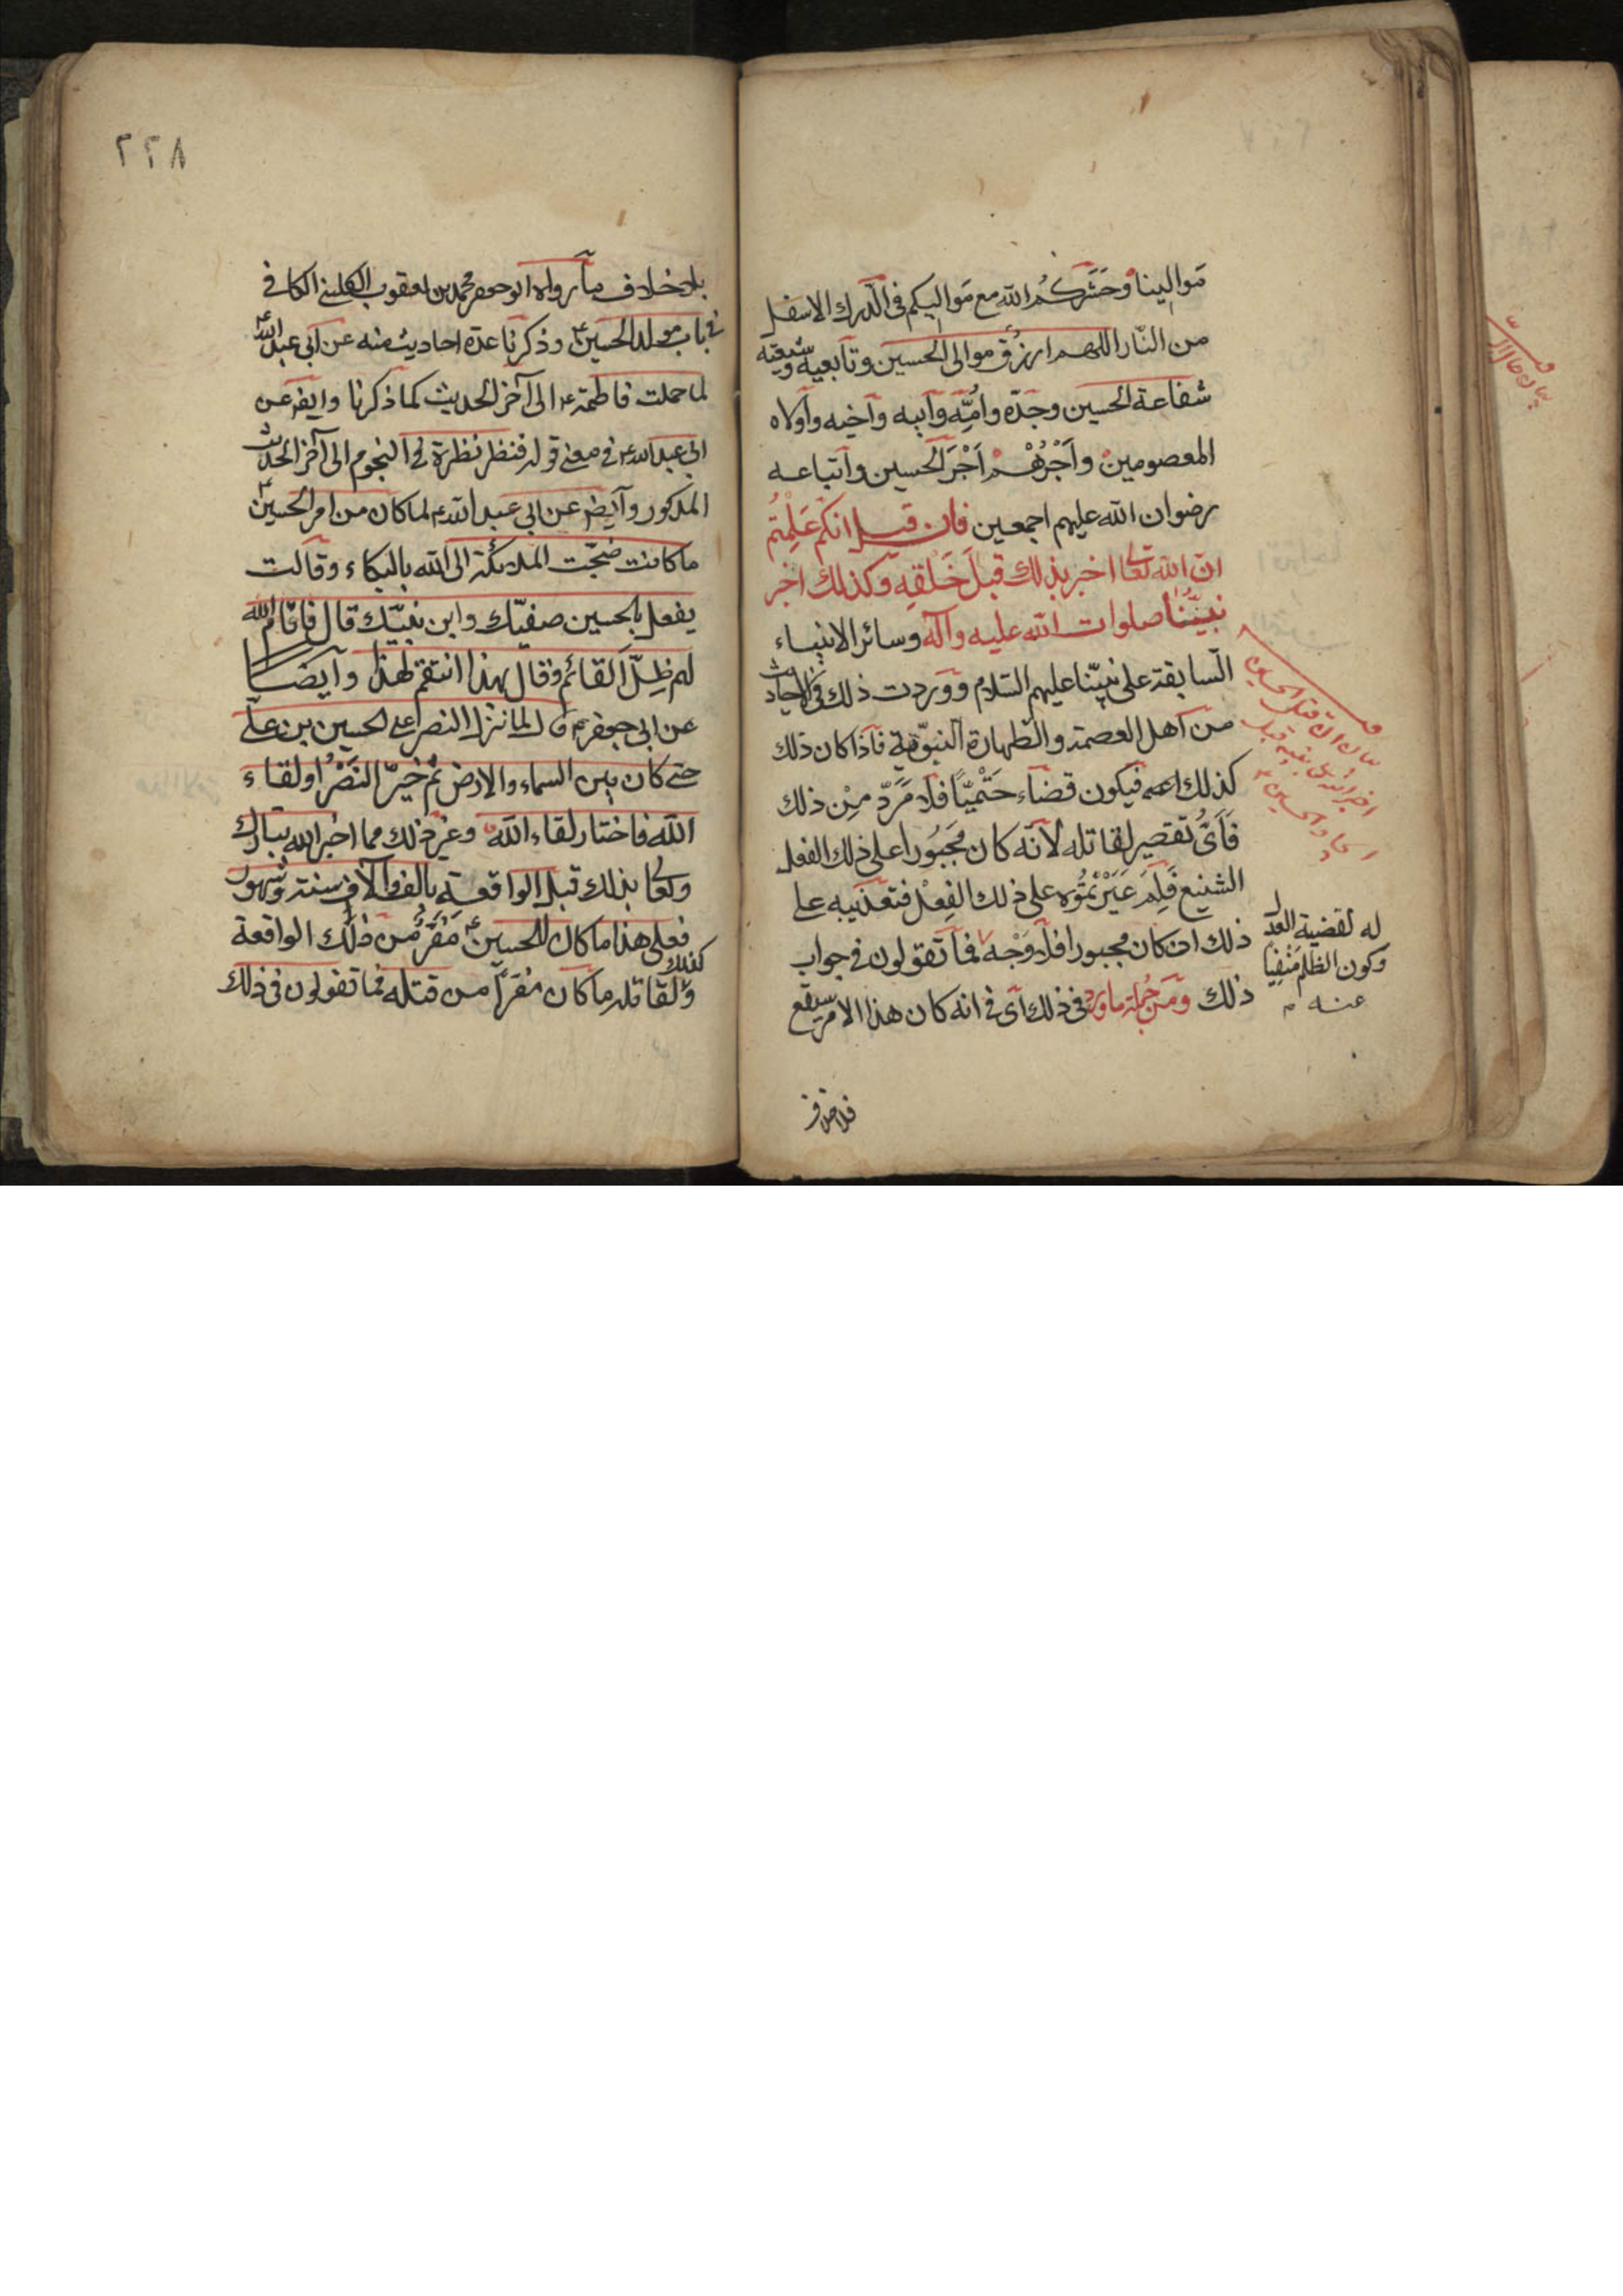 موالينا وحشركم الله مع مواليكم في الدرك الاسفل
من النار اللهم ارزق موالى الحسين وتابعيه وشيعته
شفاعة الحسين وجده وامه وابيه واخيه واولاه
المعصومين واجرهم اجر الحسين واتباعه
رضوان الله عليهم اجمعين فان قيل انكم علمتم
ان الله تعا اخبر بذلك قبل خلقه وكذلك اخبر
نبينا صلوات الله عليه وآله وسائر الانبياء
السابقة على نبينا عليهم السلام ووردت ذلك في الاحاديث
من اهل العصمة والطهارة النبوية فاذا كان ذلك
كذلك فيكون قضاء حتميا فلا مرد من ذلك
فاى تقصير لقاتله لانه كان مجبورا على ذلك الفعل
الشنيع فلم عيرتموه على ذلك الفعل فتعذيبه على
ذلك ان كان مجبورا فلا وجه فما تقولون في جواب
ذلك ومن جملة ماورد في ذلك اى في انه كان هذا الامر سيقع
له لقضية العدل
وكون الظلم منفيا
عنه م
٢٢٨
بلا خلاف ما رواه ابو جعفر محمد بن يعقوب الكليني الكافي
في باب مولد الحسين ع وذكرنا عدة احاديث منه عن ابي عبد الله ع
لما حملت فاطمة ع الى آخر الحديث كما ذكرنا وايضا عن
ابي عبد الله ع في معنى قوله فنظر نظرة في النجوم الى آخر الحديث
المذكور وايضا عن ابي عبد الله ع لما كان من امر الحسين ع
ما كانت ضجت الملائكة الى الله بالبكاء وقالت
يفعل بالحسين صفيك وابن نبيك قال فاقام الله
لهم ظل القائم وقال بهذا انتقم لهذا وايضا
عن ابي جعفر ع قال لما نزل النصر على الحسين بن علي
حتى كان بين السماء والارض ثم خير النصر او لقاء
الله فاختار لقاء الله وغير ذلك مما اخبر الله تبارك
وتعا بذلك قبل الواقعة بالف والاف سنة وشهور
فعلى هذا ما كان للحسين ع مفر من ذلك الواقعة
كذلك
ولقاتله ما كان مفرا من قتله فما تقولون في ذلك